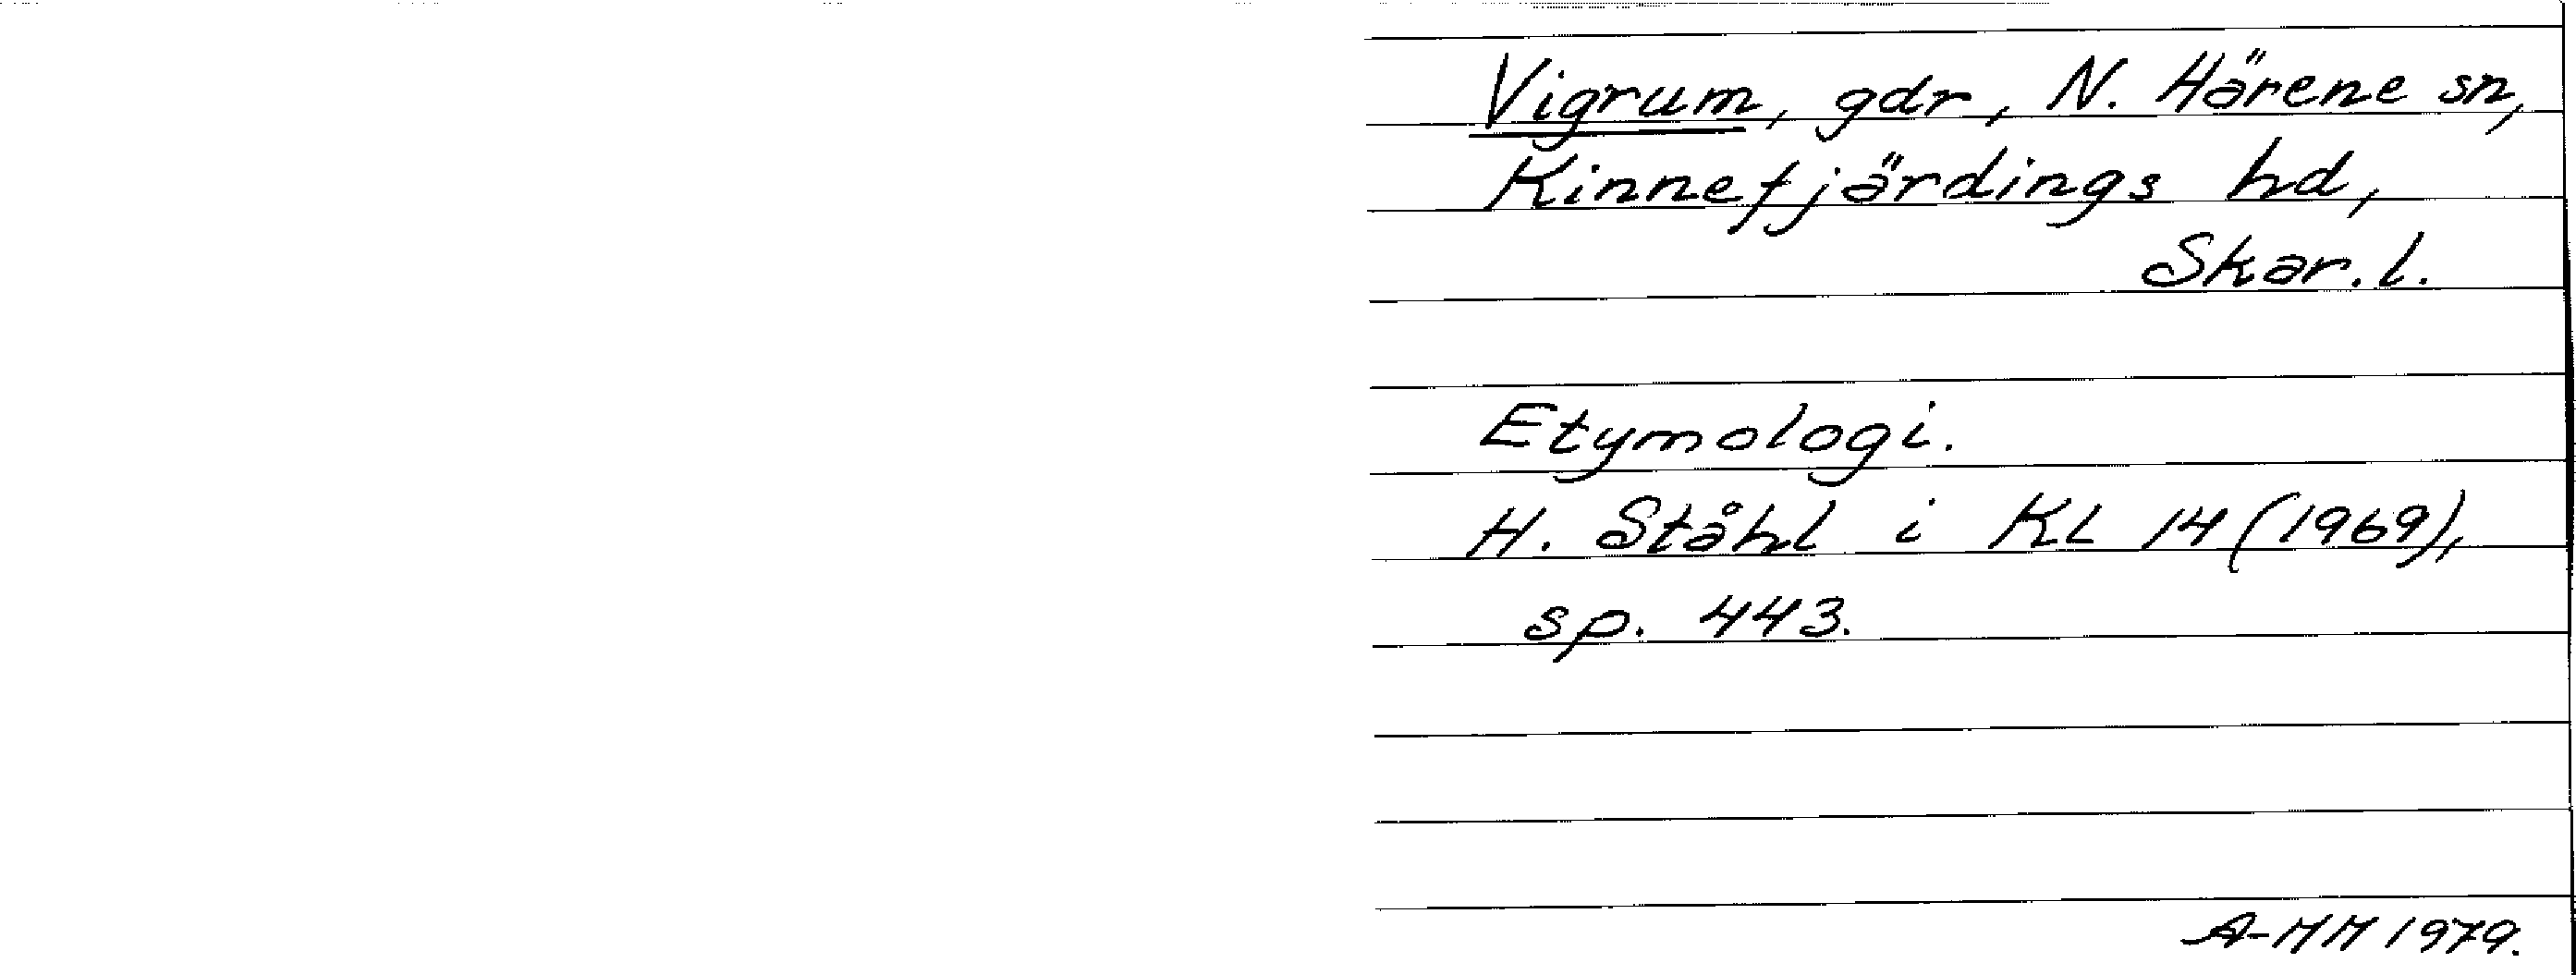 Vigrum, gdr, N. Härene sn,
Kinnefjärdings hd,
Skar. l.
Etymologi.
H. Ståhl i KL 14 (1969),
sp. 443.
A-MM 1979.